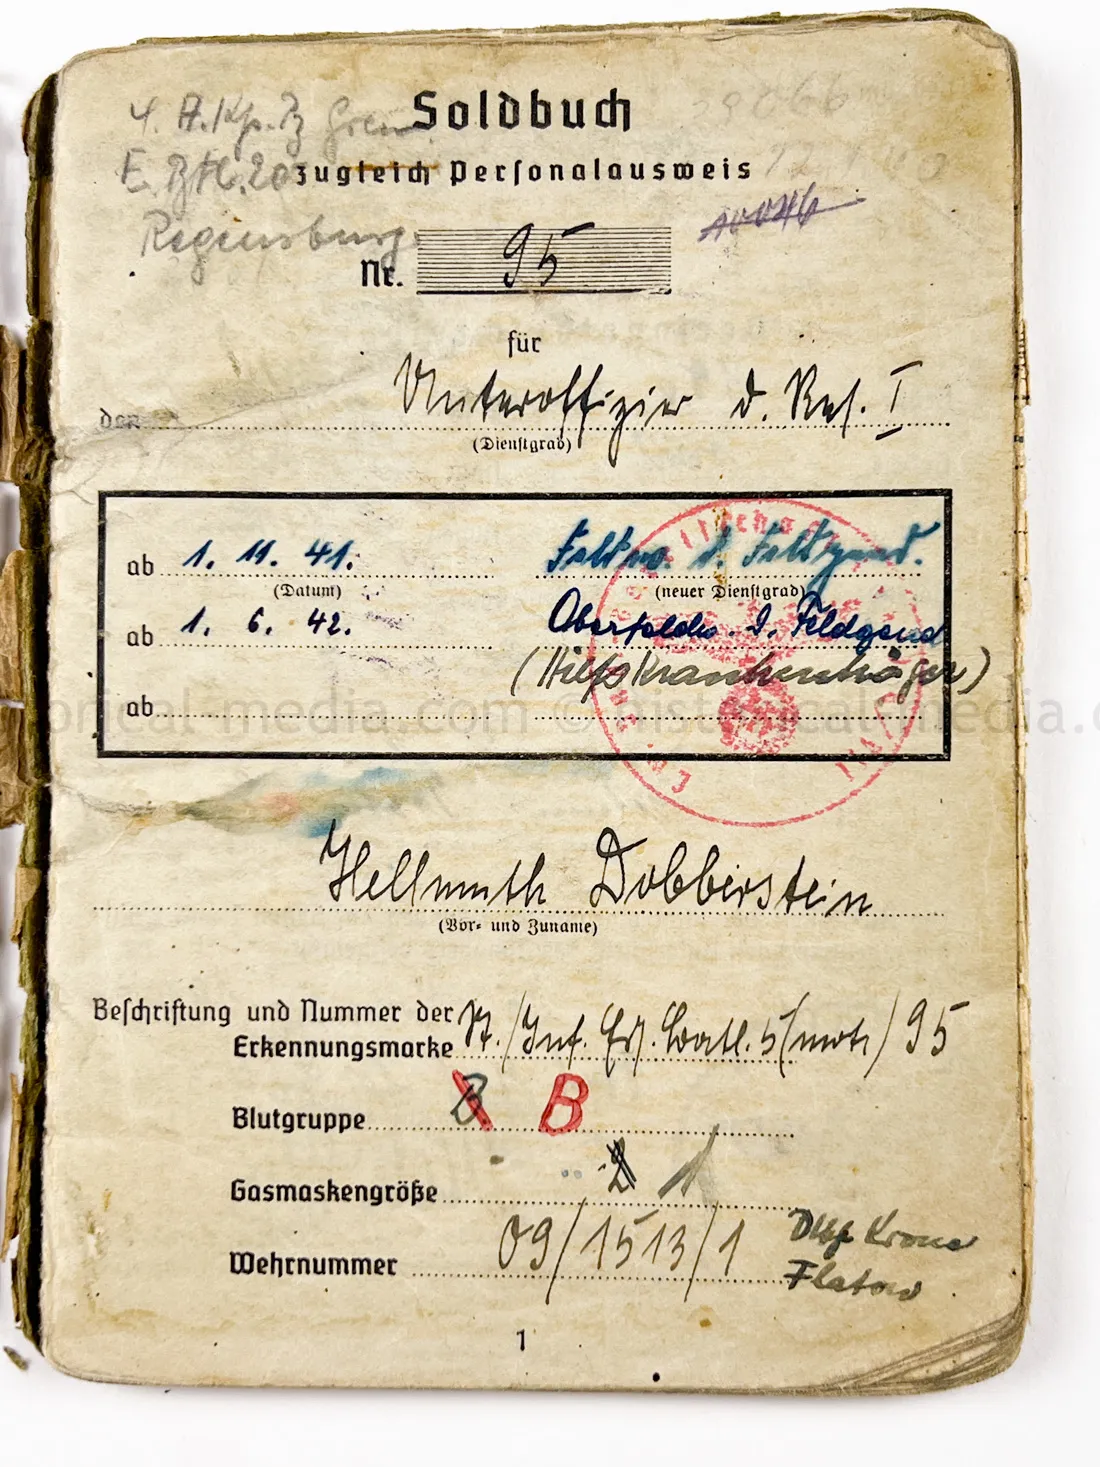 Soldbuch
4. A.Kp. Gren
E. Btl. 20
zugleich Personalausweis
Regensburg
10046
Nr. 95
für
den Unteroffizier d. Res. I
(Dienstgrad)
ab 1. 11. 41. Feldw. d. Feldgend.
(Datum) (neuer Dienstgrad)
ab 1. 6. 42. Oberfeldw. d. Feldgend
(Hilfskrankenträger)
ab
Hellmuth Dobberstein
(Vor- und Zuname)
Beschriftung und Nummer der
Erkennungsmarke St./Inf. Ers. Batl. 5 (mot) 95
Blutgruppe B B
Gasmaskengröße 2 1
Wehrnummer 09/1513/1
Krone
Flatow
1
historical-media.com © historical-media.c